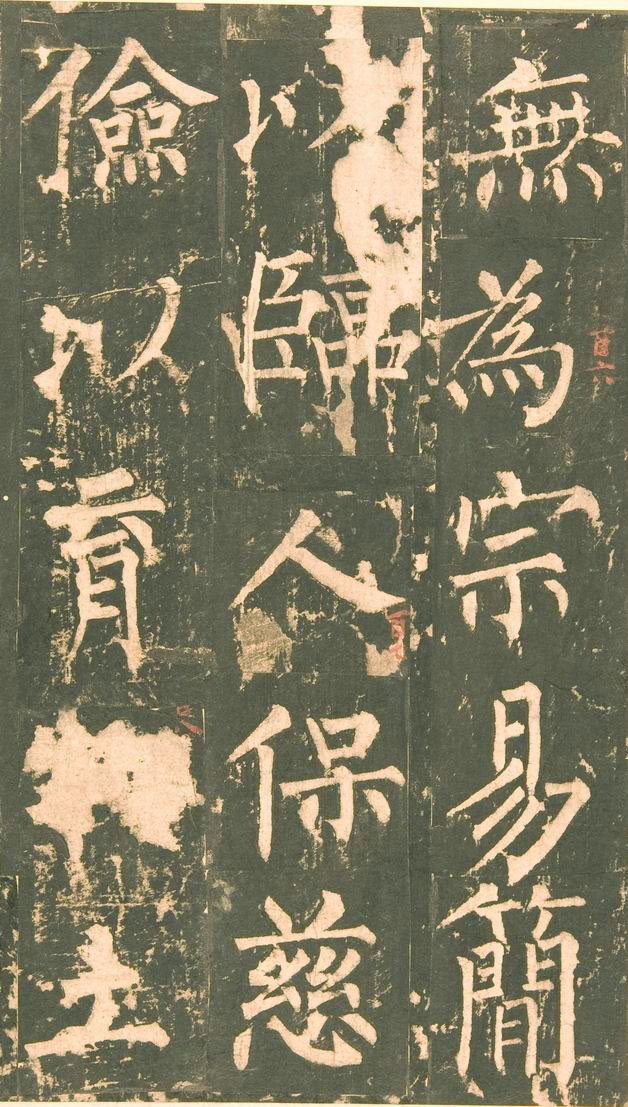 無為宗易簡
以臨人保慈
儉以育
土